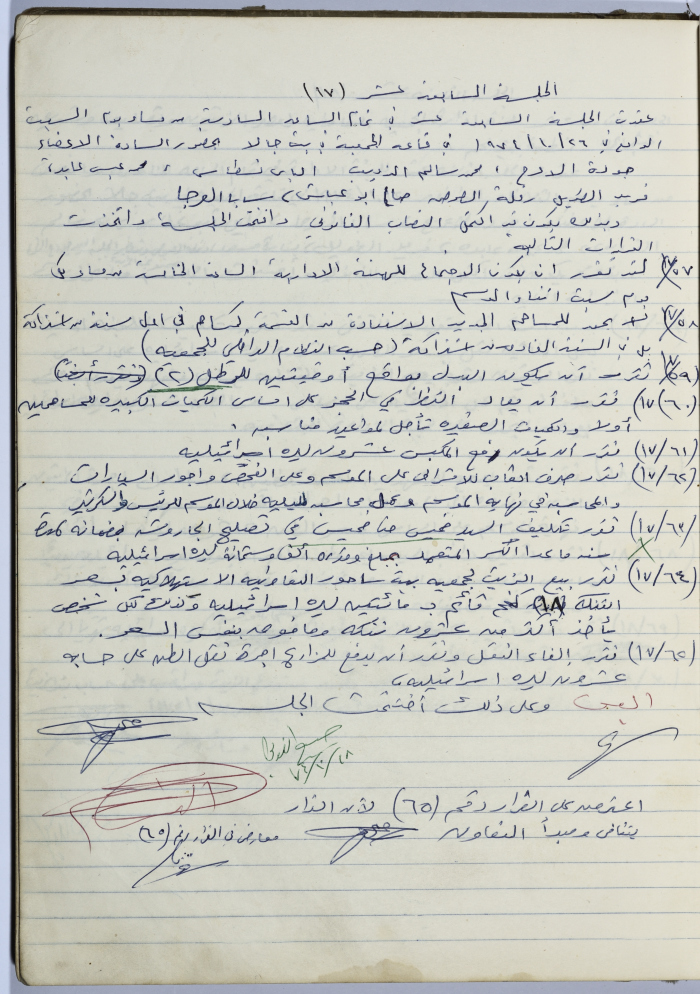 الجلسة السابعة عشر (١٧)
عقدت الجلسة السابعة عشر في تمام الساعة السادسة من مساء يوم السبت
الواقع في ٢٦/١٠/١٩٧٤ في قاعة الجمعية في بيت جالا بحضور السادة الاعضاء
جودة الاعرج، محمد سالم الذويب، الياس نسطاس، محمد عيسى عابدة
فريد الطويل، ابو عياش، سابا العرجا
وبذلك يكون قد اكتمل النصاب القانوني وافتتحت الجلسة واتخذت
القرارات التالية
لقد تقرر ان يكون الاجتماع للهيئة الادارية الساعة الخامسة من مساء كل
يوم سبت اثناء الموسم
١٧/٥٨ لا يجوز للمساهم الجديد الاستفادة من القسمة كمساهم في اول سنة من اشتراكه
بل في السنة الثانية من اشتراكه (حسب النظام الداخلي للجمعية)
(٥٩) تقرر أن يكون البدل بواقع أوقيتين للرطل (٢)
(١٧/٦٠) تقرر أن يعاد النظر في الحجز على اساس الكميات الكبيره للمساهمين
أولا والكميات الصغيره تأجل لمواعيد مناسبه.
(١٧/٦١) تقرر أن يكون رفع المكبس عشرون ليره اسرائيليه
(١٧/٦٢) تقرر صرف اتعاب للاشراف على الموسم وعلى الفحص واجور السيارات
والمحاسبه في نهاية الموسم وعمل محاسبه لليليه خلال الموسم للرئيس والسكرتير
(١٧/٦٣) تقرر تكليف السيد خميس حنا خميس في تصليح الجاروشه بضمانه لمدة
سنه ماعدا الكسر المتعمد بمبلغ وقدره ألف وستمائة ليره اسرائيليه
(١٧/٦٤) تقرر بيع الزيت لجمعيه بيت ساحور التعاونيه الاستهلاكيه بسعر
التنكه ١٨ كغم قائم ب مائتين ليره اسرائيليه وكذلك لكل شخص
يأخذ أكثر من عشرون تنكه وما فوق بنفس السعر.
(١٧/٦٥) تقرر إلغاء النقل وتقرر أن يدفع للمزارع اجرة نقل الطن على حسابه
عشرون ليره اسرائيليه،
وعلى ذلك أختتمت الجلسه
٢٨/١٠/٧٤
اعترض على القرار رقم (٦٥) لأن القرار
يتنافى ومبدأ التعاون
معارض في القرار رقم (٦٥)